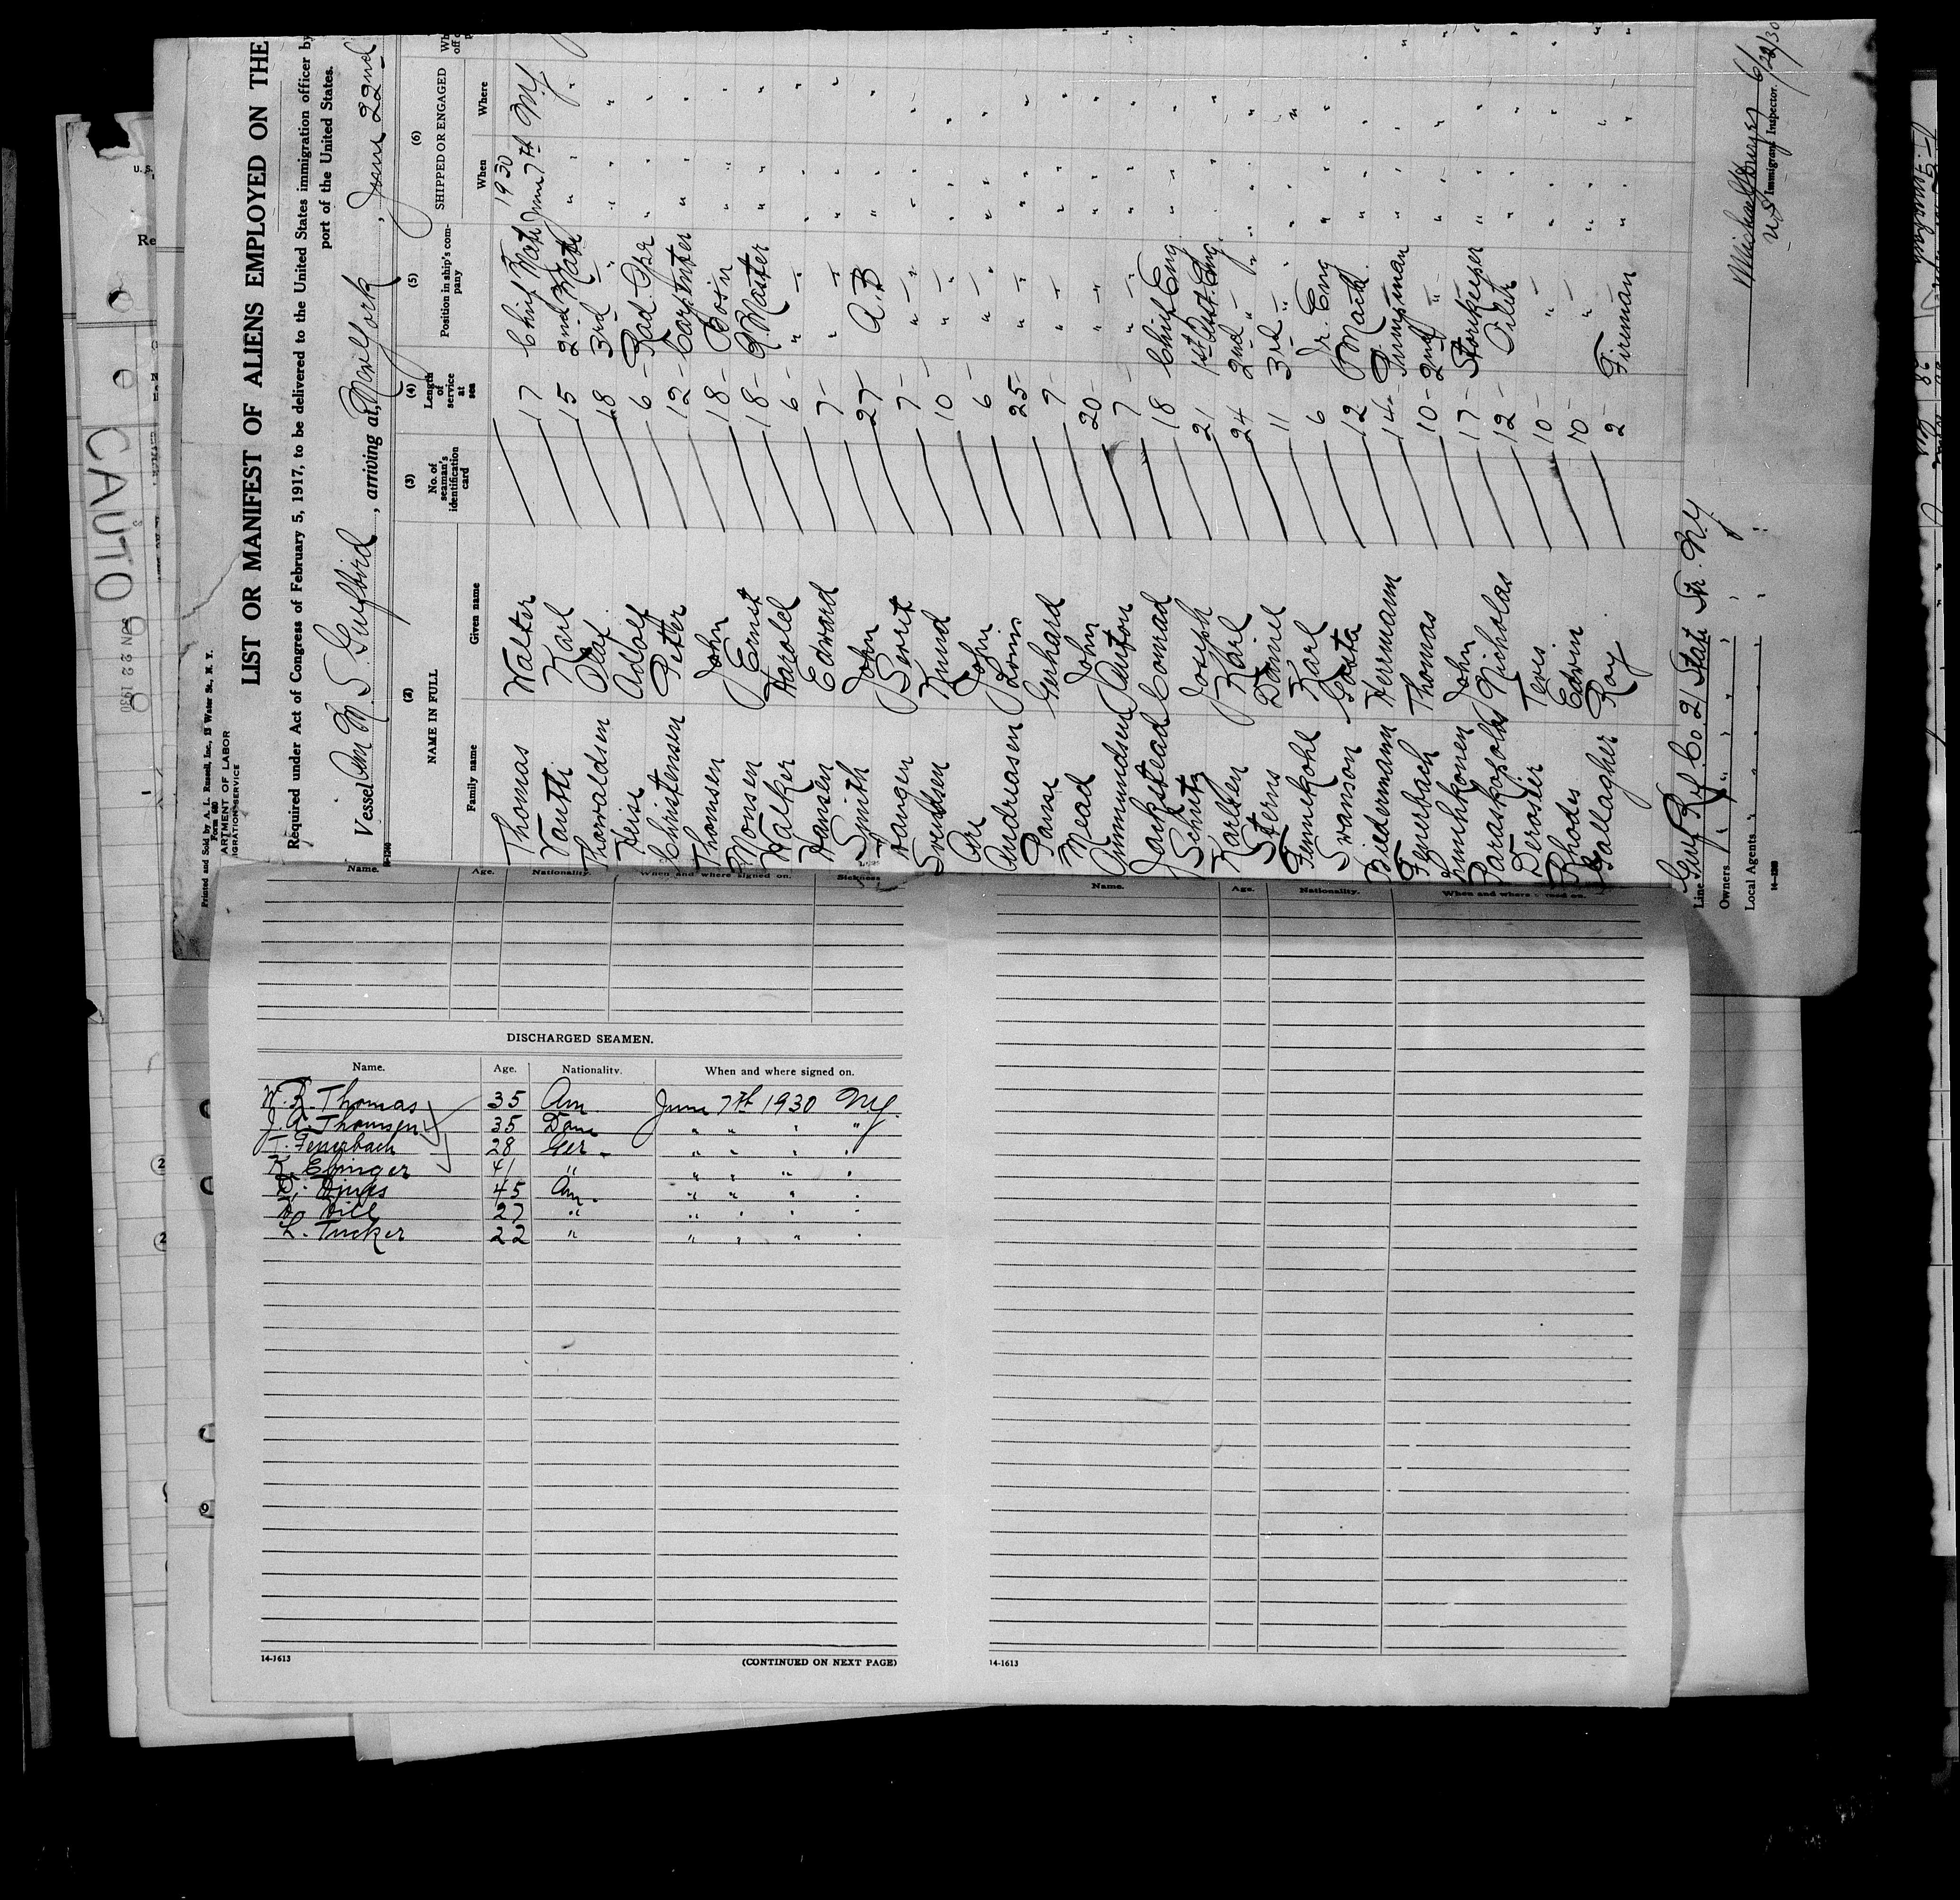 Printed and Sold by A. L. Russell, Inc., 13 Water St., N. Y.
Form 680
ARTMENT OF LABOR
IGRATION SERVICE
LIST OR MANIFEST OF ALIENS EMPLOYED ON THE
Required under Act of Congress of February 5, 1917, to be delivered to the United States immigration officer by
port of the United States.
Vessel Am M S Gulfbird, arriving at New York, June 22nd
(2) (3) (4) (5) (6)
NAME IN FULL No. of seaman's identification card Length of service at sea Position in ship's company SHIPPED OR ENGAGED
Family name Given name When Where
1930
Thomas Walter 17 Chief Mate June 7th NY
Karl 15 2nd Mate " " "
Thorwaldsen Olaf 18 3rd " " " "
Heise Adolf 6 Rad. Opr " " "
Christensen Petter 12 Carpenter " " "
Thomsen John 18 Bos'n " " "
Monsen Ernst 18 Q Master " " "
Walker Harold 6 " " " " "
Hansen Edward 7 " " " " "
Smith John 27 A.B " " "
Berrit 7 " " " " "
Svendsen Knud 10 " " " " "
John 6 " " " " "
Andreasen Louis 25 " " " " "
Gerhard 9 " " " " "
Mead John 20 " " " " "
Ammundsen Anton 7 " " " " "
Jarkstead Conrad 18 Chief Eng " " "
Schutz Joseph 21 1st Asst. Eng. " " "
Karlsen Karl 24 2nd " " " " "
Sterns Daniel 11 3rd " " " " "
Fennekohl Karl 6 Jr. Eng " " "
Swanson Gosta 12 " " "
Biedermann Herrmann 14 Pumpman " " "
Feuerbach Thomas 10 2nd " " " "
John 17 Storekeeper " " "
Paraskopolos Nicholas 12 Oiler " " "
Derosier 10 " " " " "
Rhodes Edwin 10 " " " " "
Gallagher Roy 2 Fireman " " "
Line Gulf Rfg Co 21 State Str. N.Y
Owners " " " " "
Local Agents " " " " "
14-1240
Immigrant Inspector.
6/22/30
CAUTO
JUN 22 1930
Name. Age. Nationality. When and where signed on. Sickness
Name. Age. Nationality. When and where signed on.
DISCHARGED SEAMEN.
Name. Age. Nationality. When and where signed on.
W. R. Thomas 35 Am. June 7th 1930 NY.
J. A. Thomsen 35 Dane " " " "
T. Feuerbach 28 Ger. " " " "
K. Ebinger 41 " " " " "
45 Am. " " " "
27 " " " " "
L. Tucker 22 " " " " "
14-1613
(CONTINUED ON NEXT PAGE)
14-1613